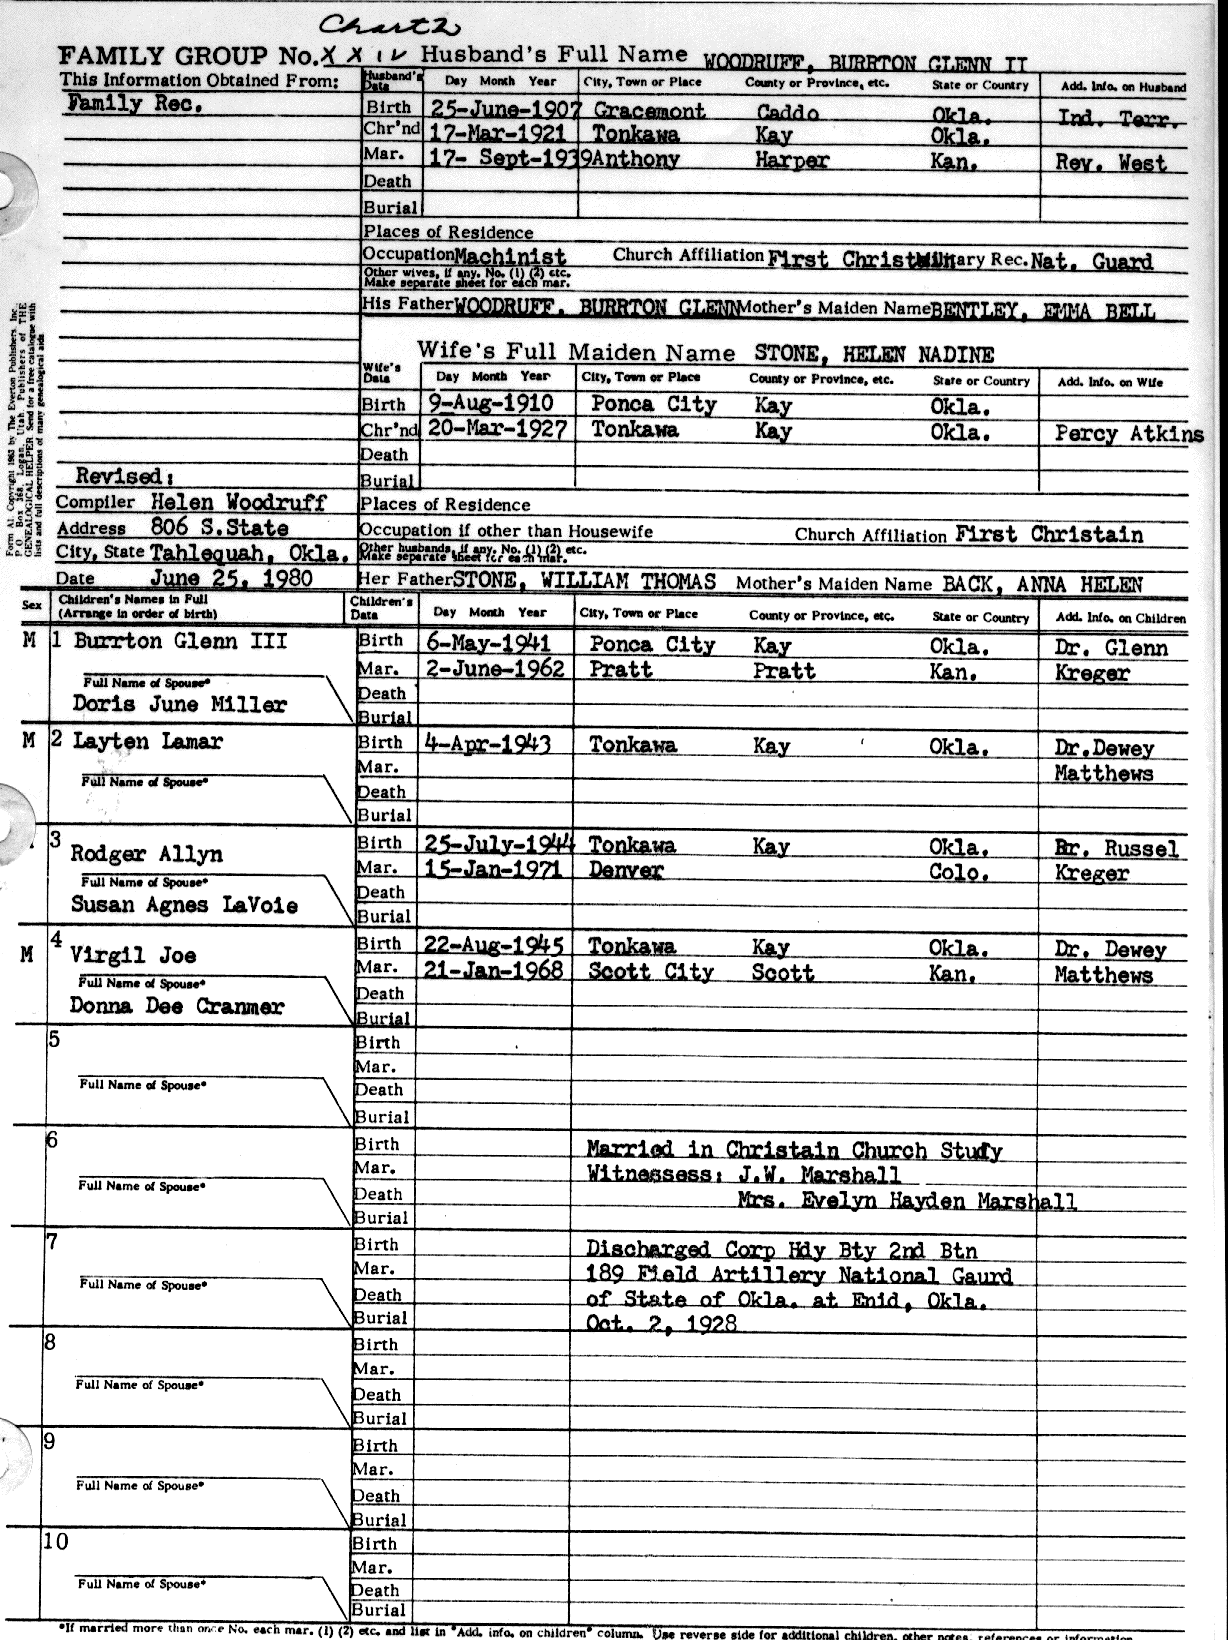 Chart 2
FAMILY GROUP No. X X I V Husband's Full Name WOODRUFF, BURRTON GLENN II
This Information Obtained From: Husband's Data Day Month Year City, Town or Place County or Province, etc. State or Country Add. Info. on Husband
Family Rec. Birth 25-June-1907 Gracemont Caddo Okla. Ind. Terr.
Chr'nd 17-Mar-1921 Tonkawa Kay Okla.
Mar. 17- Sept-1939 Anthony Harper Kan. Rev. West
Death
Burial
Places of Residence
Occupation Machinist Church Affiliation First Christ Military Rec. Nat. Guard
Other wives, if any. No. (1) (2) etc.
Make separate sheet for each mar.
His Father WOODRUFF, BURRTON GLENN Mother's Maiden Name BENTLEY, EMMA BELL
Wife's Full Maiden Name STONE, HELEN NADINE
Wife's Data Day Month Year City, Town or Place County or Province, etc. State or Country Add. Info. on Wife
Birth 9-Aug-1910 Ponca City Kay Okla.
Chr'nd 20-Mar-1927 Tonkawa Kay Okla. Percy Atkins
Death
Revised: Burial
Compiler Helen Woodruff Places of Residence
Address 806 S.State Occupation if other than Housewife Church Affiliation First Christain
City, State Tahlequah, Okla. Other husbands, if any. No. (1) (2) etc.
Make separate sheet for each mar.
Date June 25, 1980 Her Father STONE, WILLIAM THOMAS Mother's Maiden Name BACK, ANNA HELEN
Form A1. Copyright 1963 by The Everton Publishers, Inc.
P.O. Box 368, Logan, Utah. Publishers of THE
GENEALOGICAL HELPER. Send for a free catalogue with
lists and full descriptions of many genealogical aids
Sex Children's Names in Full (Arrange in order of birth) Children's Data Day Month Year City, Town or Place County or Province, etc. State or Country Add. Info. on Children
M 1 Burrton Glenn III Birth 6-May-1941 Ponca City Kay Okla. Dr. Glenn
Mar. 2-June-1962 Pratt Pratt Kan. Kreger
Full Name of Spouse* Death
Doris June Miller Burial
M 2 Layten Lamar Birth 4-Apr-1943 Tonkawa Kay Okla. Dr.Dewey
Mar. Matthews
Full Name of Spouse* Death
Burial
3 Rodger Allyn Birth 25-July-1944 Tonkawa Kay Okla. Dr. Russel
Mar. 15-Jan-1971 Denver Colo. Kreger
Full Name of Spouse* Death
Susan Agnes LaVoie Burial
M 4 Virgil Joe Birth 22-Aug-1945 Tonkawa Kay Okla. Dr. Dewey
Mar. 21-Jan-1968 Scott City Scott Kan. Matthews
Full Name of Spouse* Death
Donna Dee Cranmer Burial
5 Birth
Mar.
Full Name of Spouse* Death
Burial
6 Birth Married in Christain Church Study
Mar. Witnessess: J.W. Marshall
Full Name of Spouse* Death Mrs. Evelyn Hayden Marshall
Burial
7 Birth Discharged Corp Hdy Bty 2nd Btn
Mar. 189 Field Artillery National Gaurd
Full Name of Spouse* Death of State of Okla. at Enid, Okla.
Burial Oct. 2, 1928
8 Birth
Mar.
Full Name of Spouse* Death
Burial
9 Birth
Mar.
Full Name of Spouse* Death
Burial
10 Birth
Mar.
Full Name of Spouse* Death
Burial
*If married more than once No. each mar. (1) (2) etc. and list in "Add. info. on children" column. Use reverse side for additional children, other notes, references or information